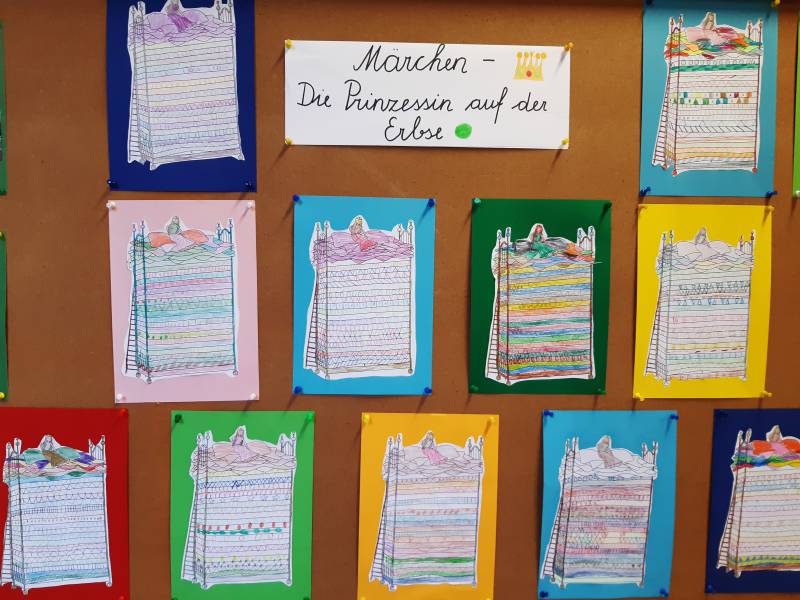 Märchen -
Die Prinzessin auf der
Erbse